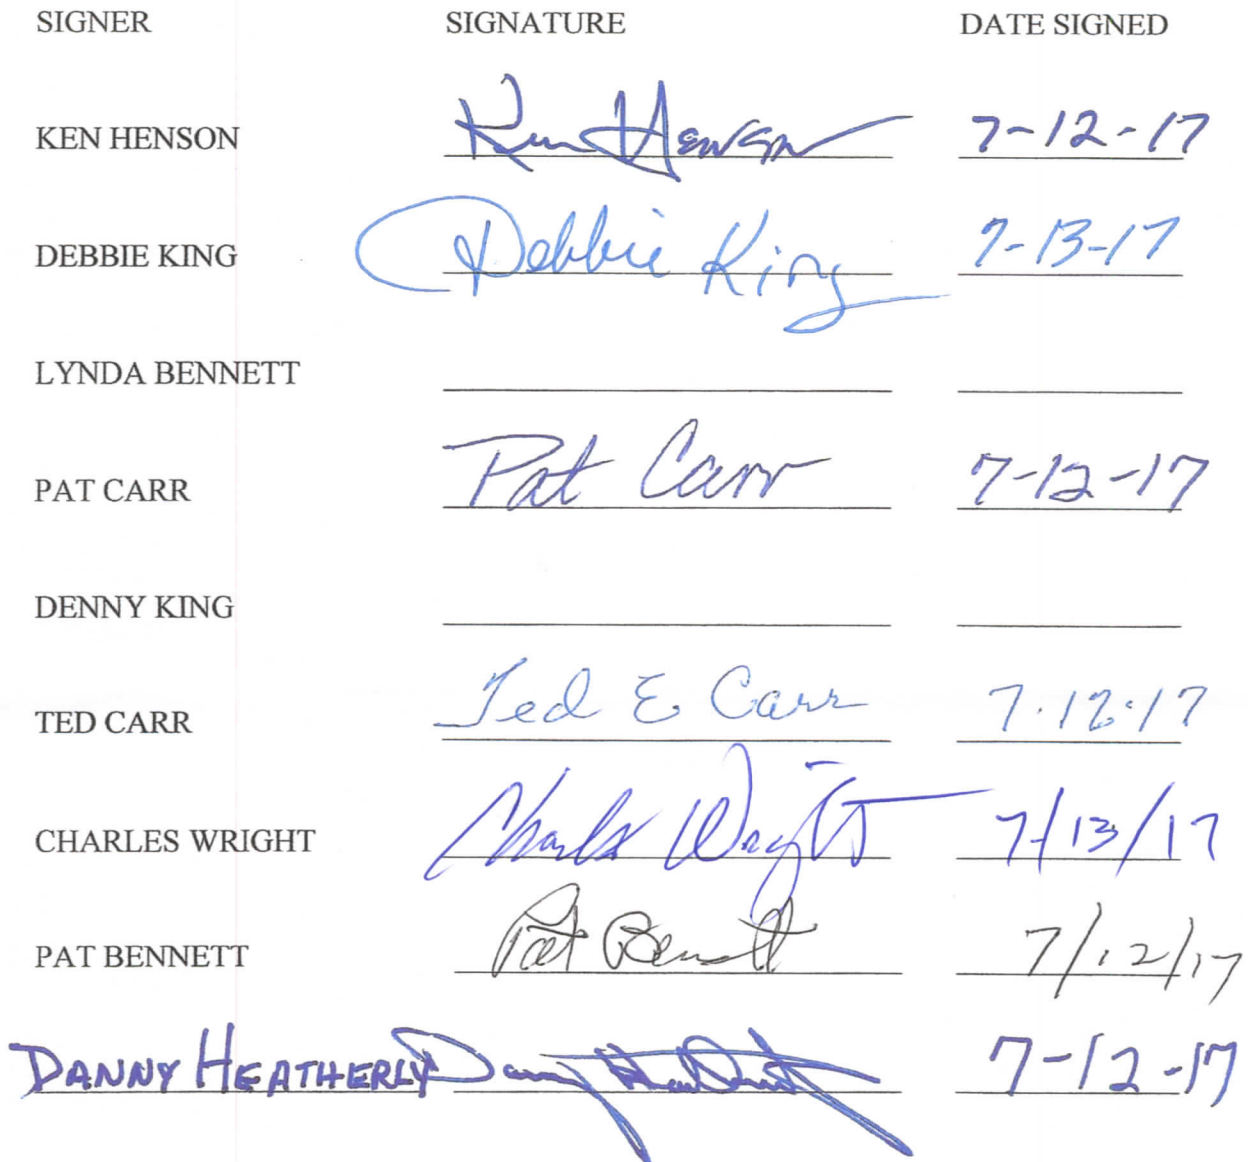 SIGNER SIGNATURE DATE SIGNED
KEN HENSON Ken Henson 7-12-17
DEBBIE KING Debbie King 7-13-17
LYNDA BENNETT
PAT CARR Pat Carr 7-12-17
DENNY KING
TED CARR Ted E Carr 7.12.17
CHARLES WRIGHT Charles Wright 7/13/17
PAT BENNETT Pat Bennett 7/12/17
DANNY HEATHERLY Danny Heatherly 7-12-17